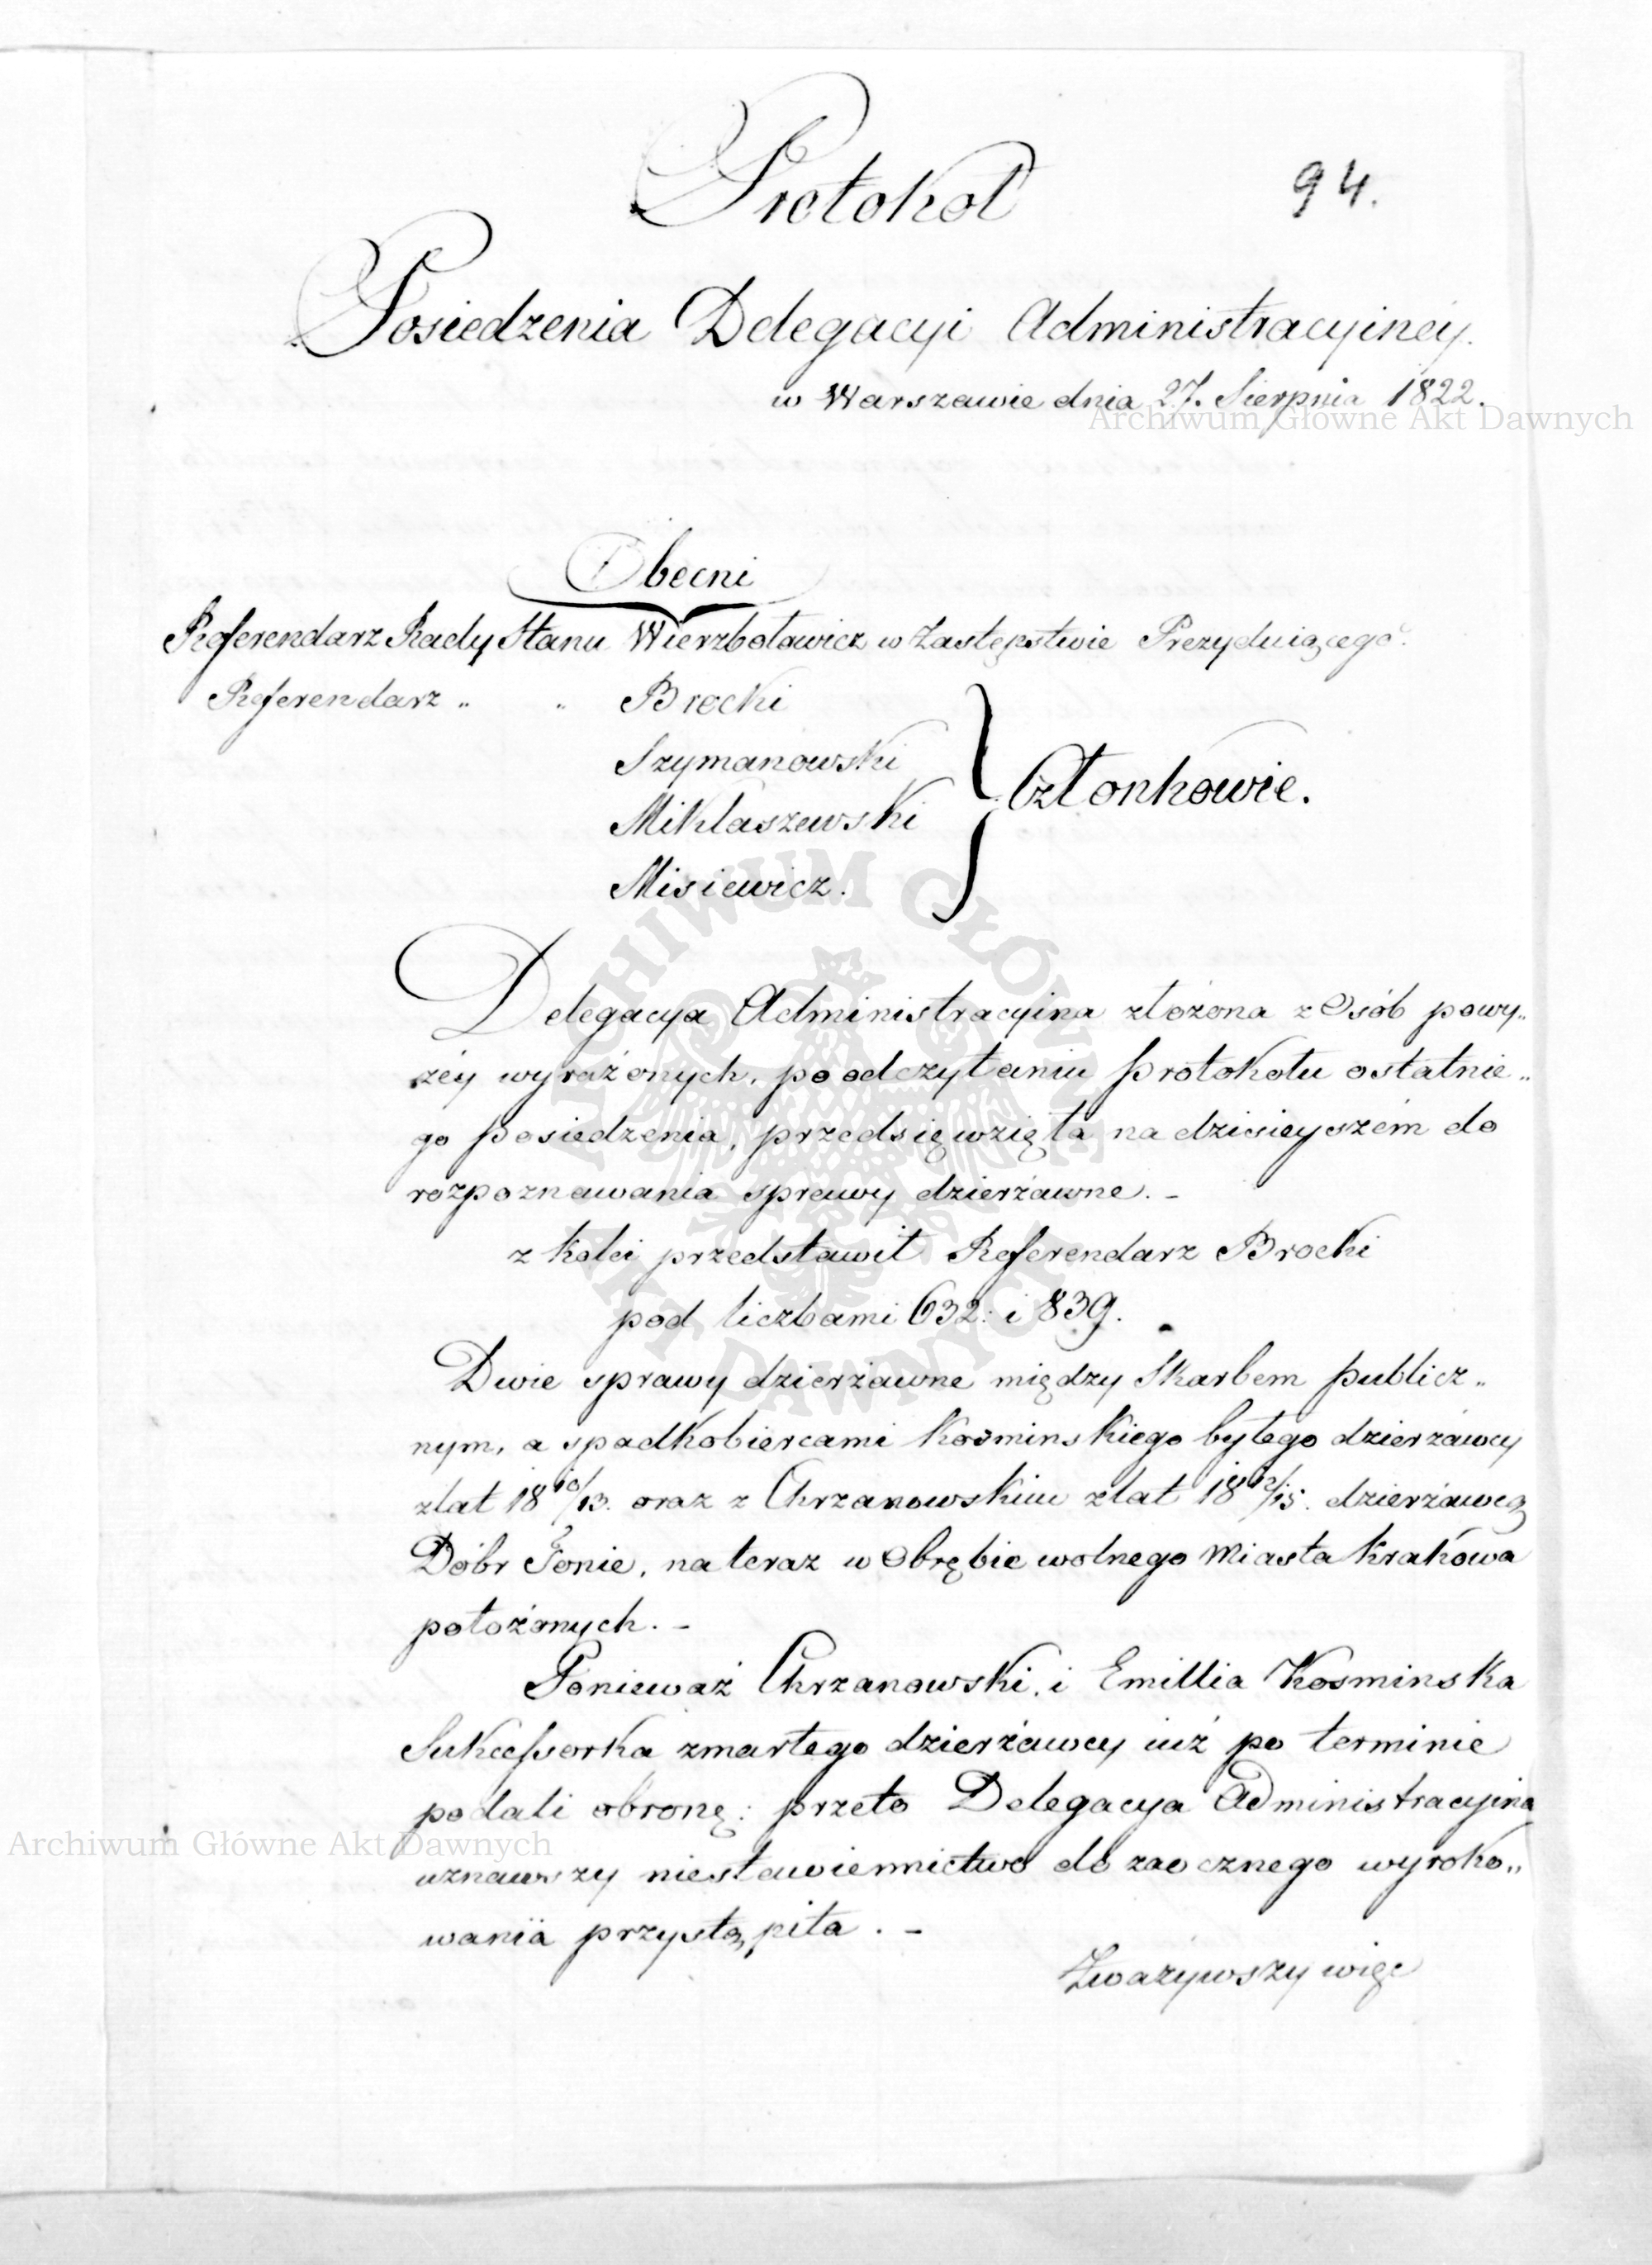 94.
Protokół
Posiedzenia Delegacyi Administracyinéy.
w Warszawie dnia 27. Sierpnia 1822.
Archiwum Główne Akt Dawnych
Obecni
Referendarz Rady Stanu Wierzbołowicz w Zastępstwie Prezyduiącego.
Referendarz „ „ Brocki
Szymanowski
Miklaszewski
Misiewicz.
Członkowie.
ARCHIWUM GŁÓWNE AKT DAWNYCH
Delegacya Administracyina złożona z Osób powy„
żéy wyrażonych, po odczytaniu protokołu ostatnie„
go posiedzenia, przedsięwzięła na dzisieyszém do
rozpoznawania sprawy dzierżawne. –
z kolei przedstawił Referendarz Brocki
pod liczbami 632. i 839.
Dwie sprawy dzierżawne między Skarbem publicz„
nym, a spadkobiercami Kosminskiego byłego dzierżawcy
z lat 18 10/13. oraz z Chrzanowskim z lat 18 12/15. dzierżawcą
Dóbr Tonie, na teraz w Obrębie wolnego Miasta Krakówa
położonych. –
Ponieważ Chrzanowski, i Emillia Kosminska
Sukcessorka zmarłego dzierżawcy iuż po terminie
podali obronę; przeto Delegacya Administracyina
Archiwum Główne Akt Dawnych
uznawszy niestawiennictwo do zaocznego wyroko„
wania przystąpiła. –
Zważywszy więc